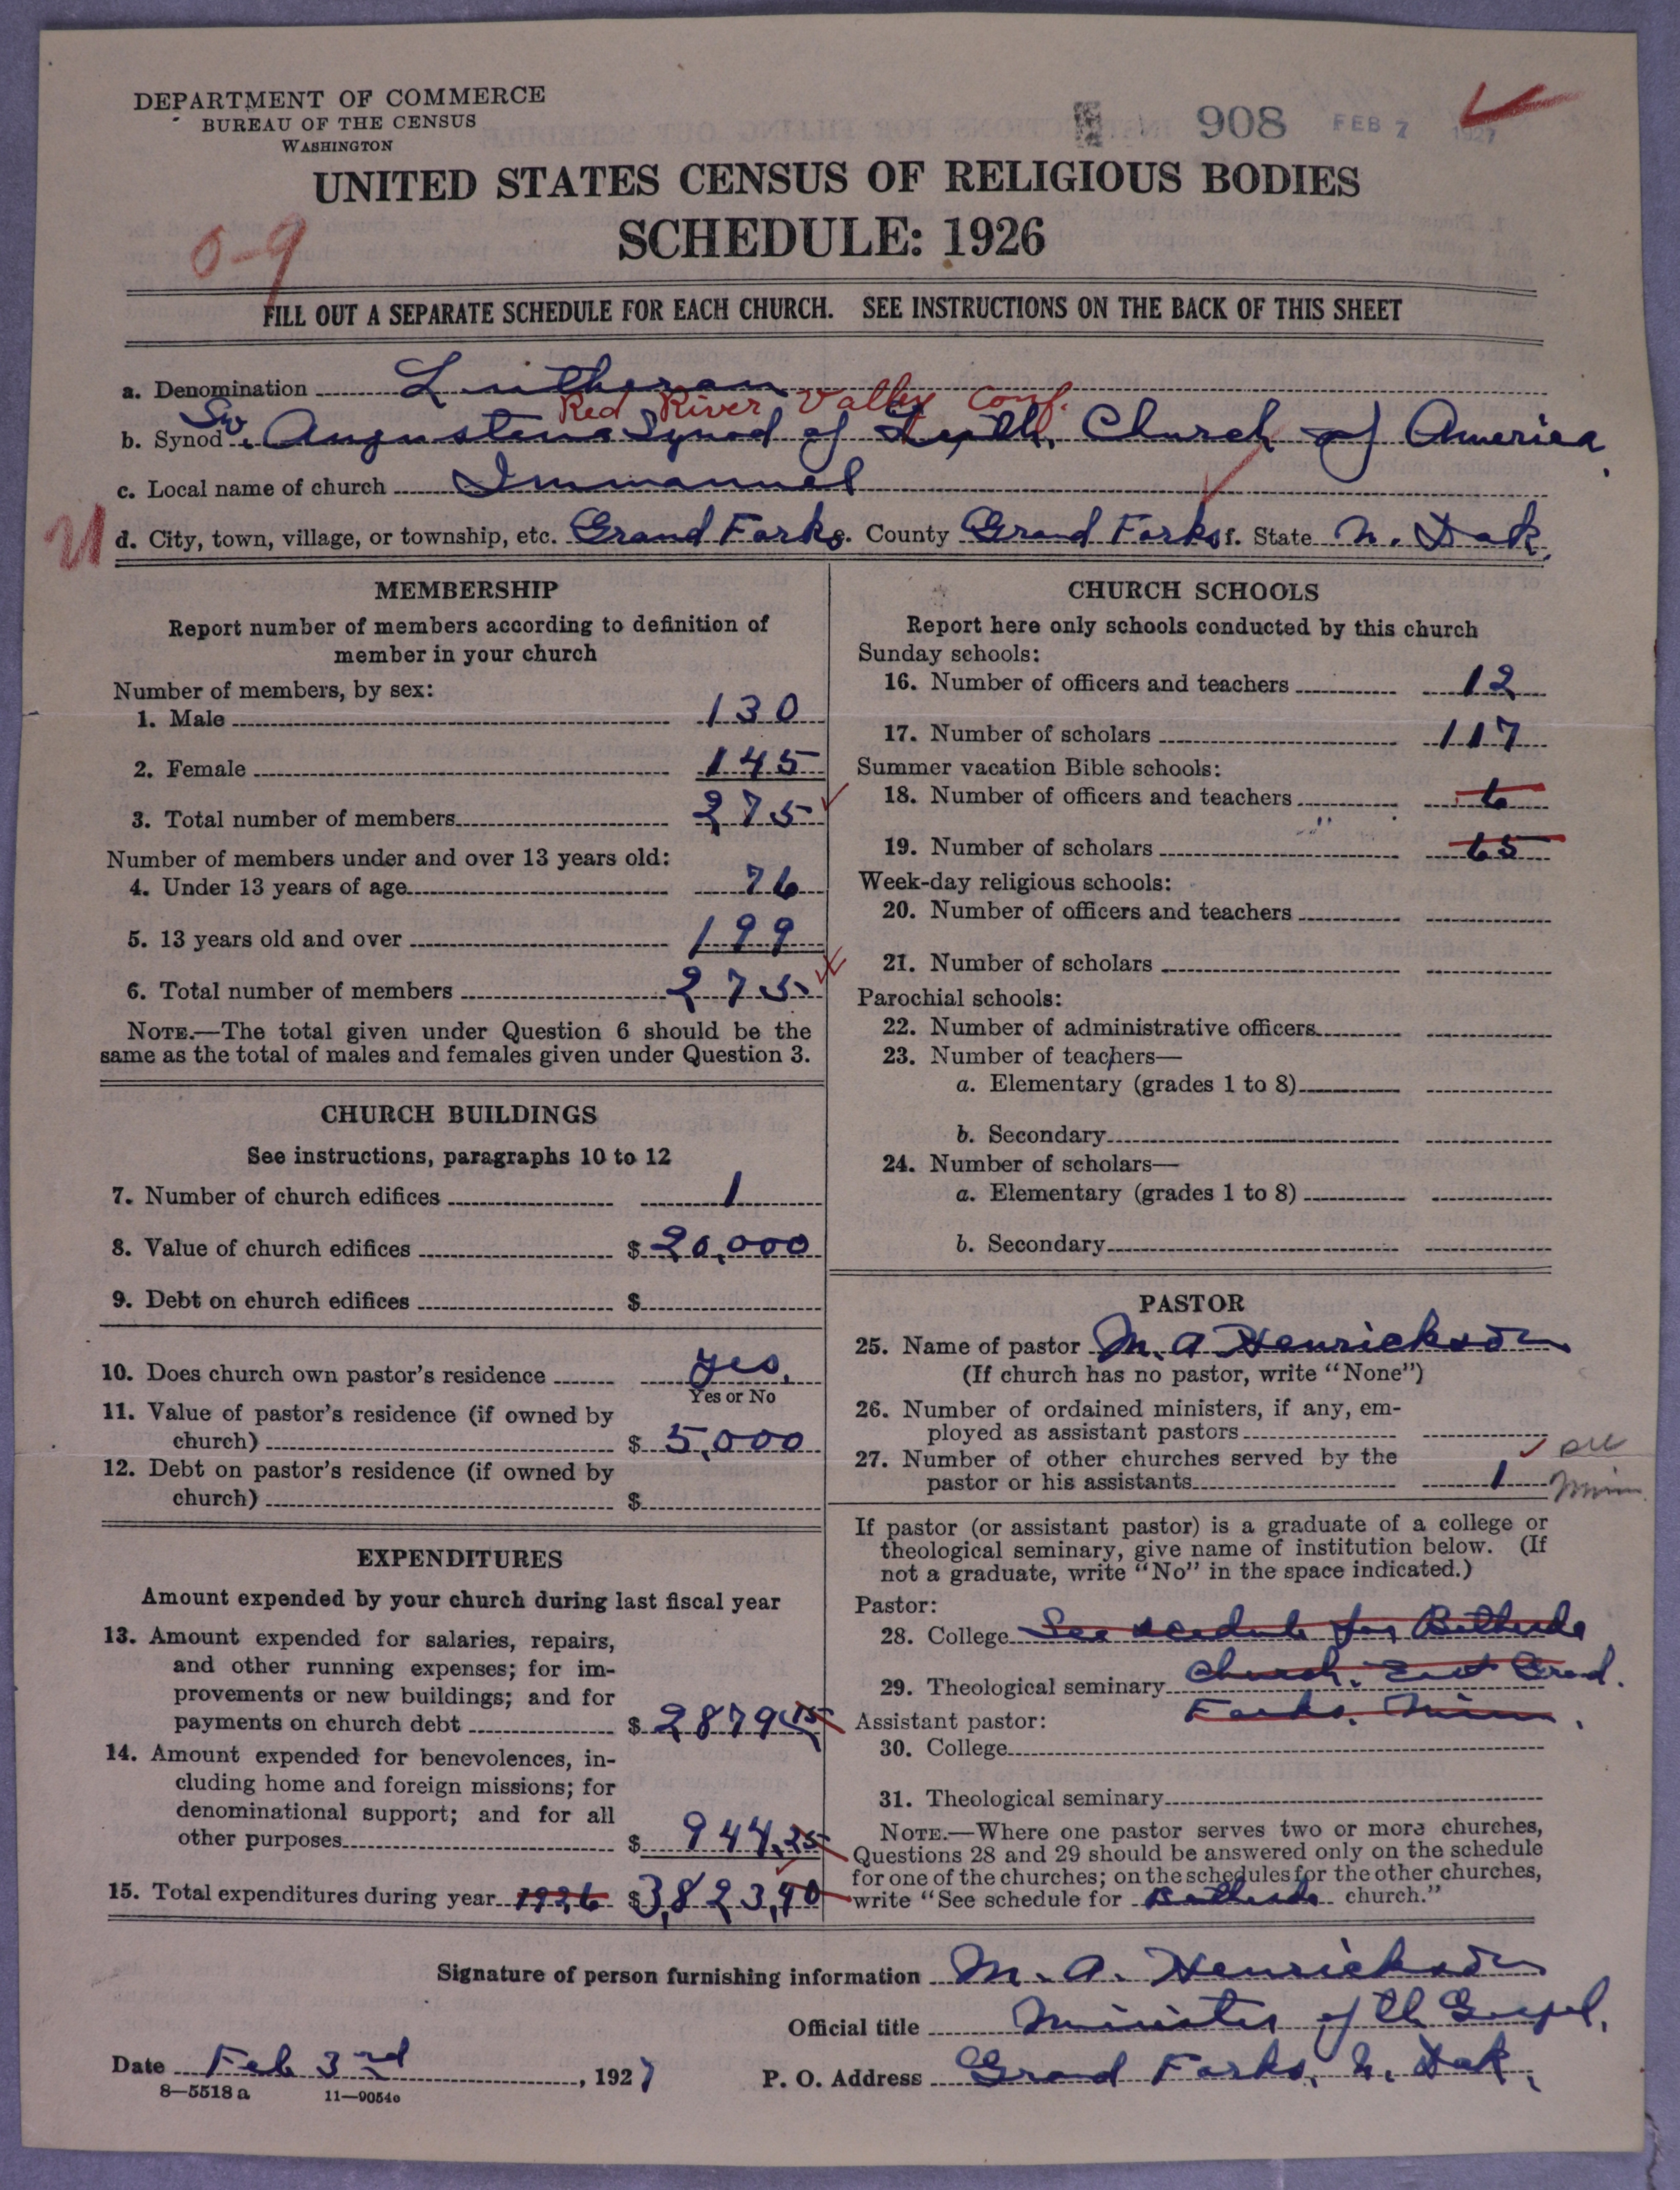 DEPARTMENT OF COMMERCE
BUREAU OF THE CENSUS
WASHINGTON
908 FEB 7 1927
UNITED STATES CENSUS OF RELIGIOUS BODIES
SCHEDULE: 1926
0-9
FILL OUT A SEPARATE SCHEDULE FOR EACH CHURCH. SEE INSTRUCTIONS ON THE BACK OF THIS SHEET
a. Denomination Lutheran
Red River Valley Conf.
b. Synod Sw. Augustana Synod of Luth. Church of America
c. Local name of church Immanuel
d. City, town, village, or township, etc. Grand Forks e. County Grand Forks f. State N. Dak.
MEMBERSHIP
Report number of members according to definition of
member in your church
Number of members, by sex:
1. Male 130
2. Female 145
3. Total number of members 275
Number of members under and over 13 years old:
4. Under 13 years of age 76
5. 13 years old and over 199
6. Total number of members 275
NOTE.—The total given under Question 6 should be the
same as the total of males and females given under Question 3.
CHURCH BUILDINGS
See instructions, paragraphs 10 to 12
7. Number of church edifices 1
8. Value of church edifices $ 20,000
9. Debt on church edifices $
10. Does church own pastor's residence yes.
Yes or No
11. Value of pastor's residence (if owned by
church) $ 5,000
12. Debt on pastor's residence (if owned by
church) $
EXPENDITURES
Amount expended by your church during last fiscal year
13. Amount expended for salaries, repairs,
and other running expenses; for im-
provements or new buildings; and for
payments on church debt $ 2879.15
14. Amount expended for benevolences, in-
cluding home and foreign missions; for
denominational support; and for all
other purposes $ 944.25
15. Total expenditures during year 1926 $ 3,823,40
CHURCH SCHOOLS
Report here only schools conducted by this church
Sunday schools:
16. Number of officers and teachers 12
17. Number of scholars 117
Summer vacation Bible schools:
18. Number of officers and teachers 6
19. Number of scholars 65
Week-day religious schools:
20. Number of officers and teachers
21. Number of scholars
Parochial schools:
22. Number of administrative officers
23. Number of teachers—
a. Elementary (grades 1 to 8)
b. Secondary
24. Number of scholars—
a. Elementary (grades 1 to 8)
b. Secondary
PASTOR
25. Name of pastor M. A Henrickson
(If church has no pastor, write "None")
26. Number of ordained ministers, if any, em-
ployed as assistant pastors
27. Number of other churches served by the
pastor or his assistants 1 Minn
If pastor (or assistant pastor) is a graduate of a college or
theological seminary, give name of institution below. (If
not a graduate, write "No" in the space indicated.)
Pastor:
28. College See scedule for Bethesda
29. Theological seminary Church, East Grand
Forks, Minn.
Assistant pastor:
30. College
31. Theological seminary
NOTE.—Where one pastor serves two or more churches,
Questions 28 and 29 should be answered only on the schedule
for one of the churches; on the schedules for the other churches,
write "See schedule for Bethesda church."
Signature of person furnishing information M. A. Henrickson
Official title Minister of th Gospel.
Date Feb 3rd, 1927 P. O. Address Grand Forks, N. Dak.
8—5518 a 11—9054o